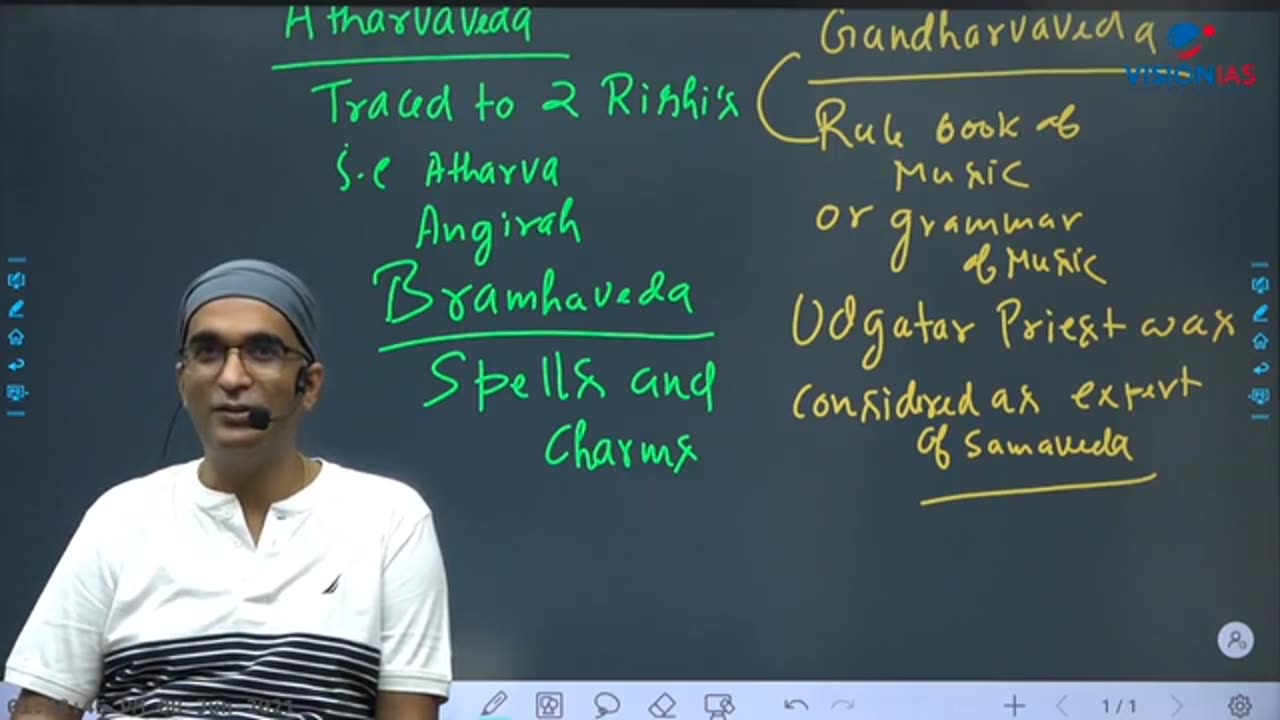 Atharvaveda
Traced to 2 Rishi's
i.e Atharva
Angirah
Bramhaveda
Spells and
Charms
Gandharvaveda
Rule book of
Music
or grammar
of Music
Udgatar Priest was
considered as expert
of Samaveda
VISIONIAS
1/1